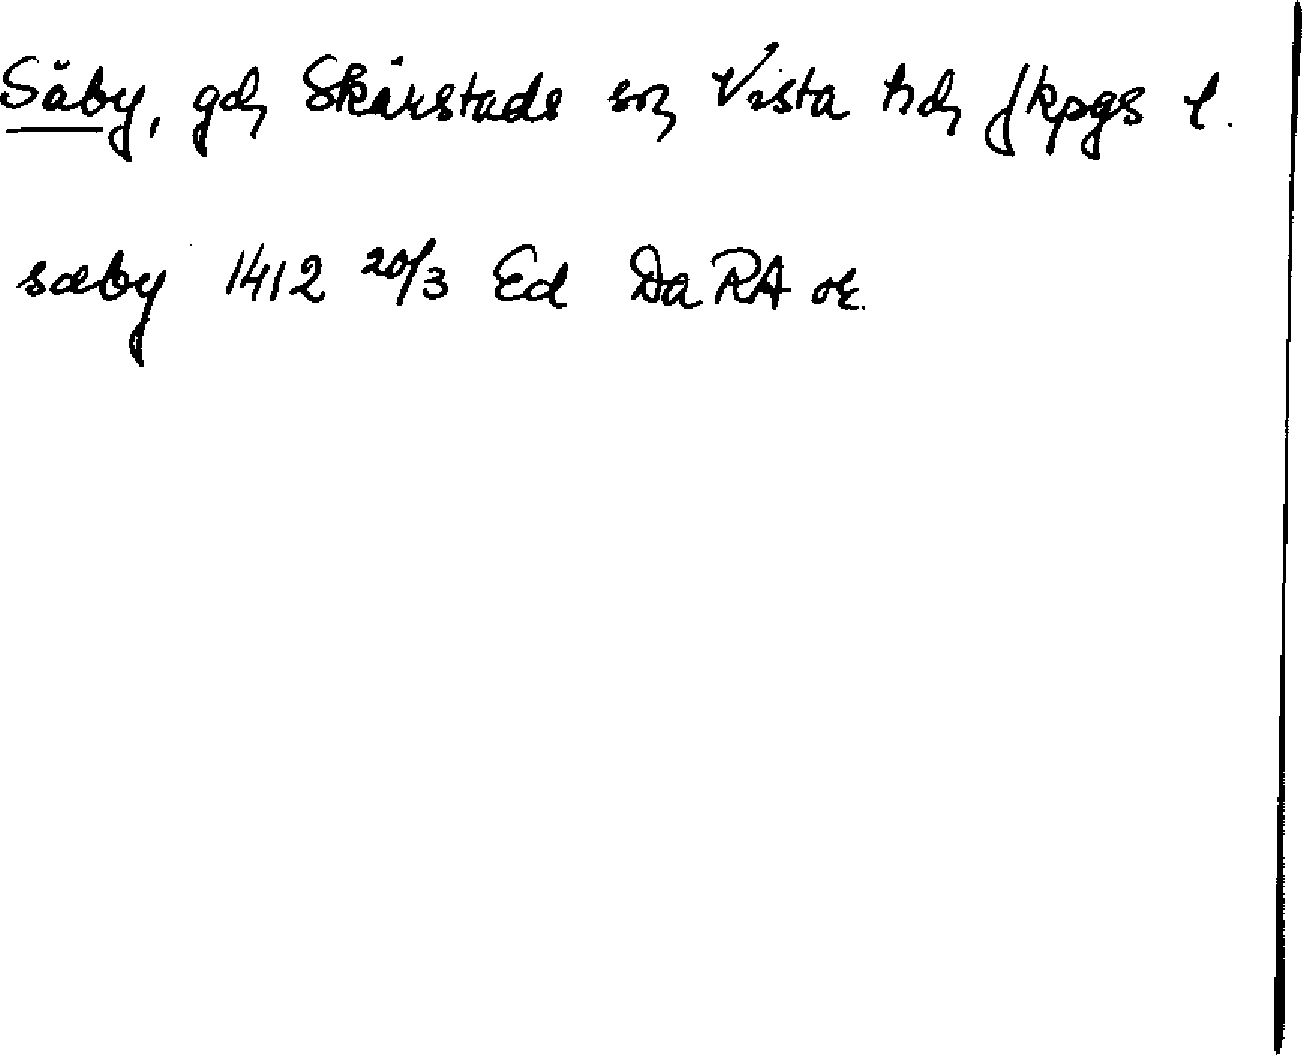 Säby, gd, Skärstads sn, Vista hd, Jkpgs l.
sæby 1412 20/3 Ed Da RA or.